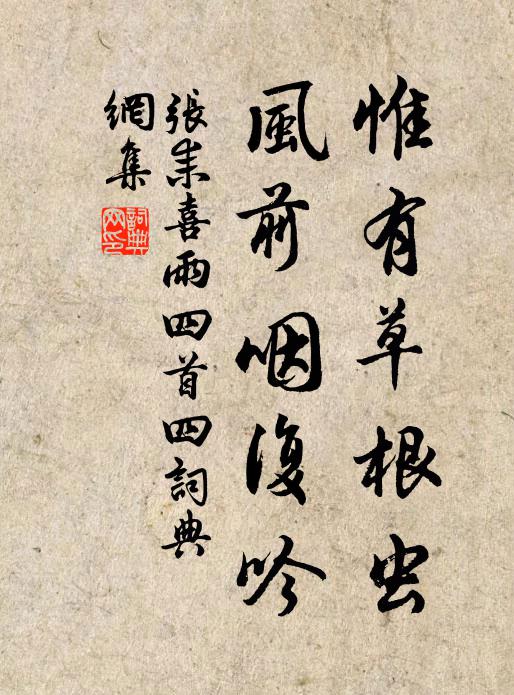 惟有草根虫
風前咽復吟
張耒喜雨四首四詞典
網集
詞典
网印